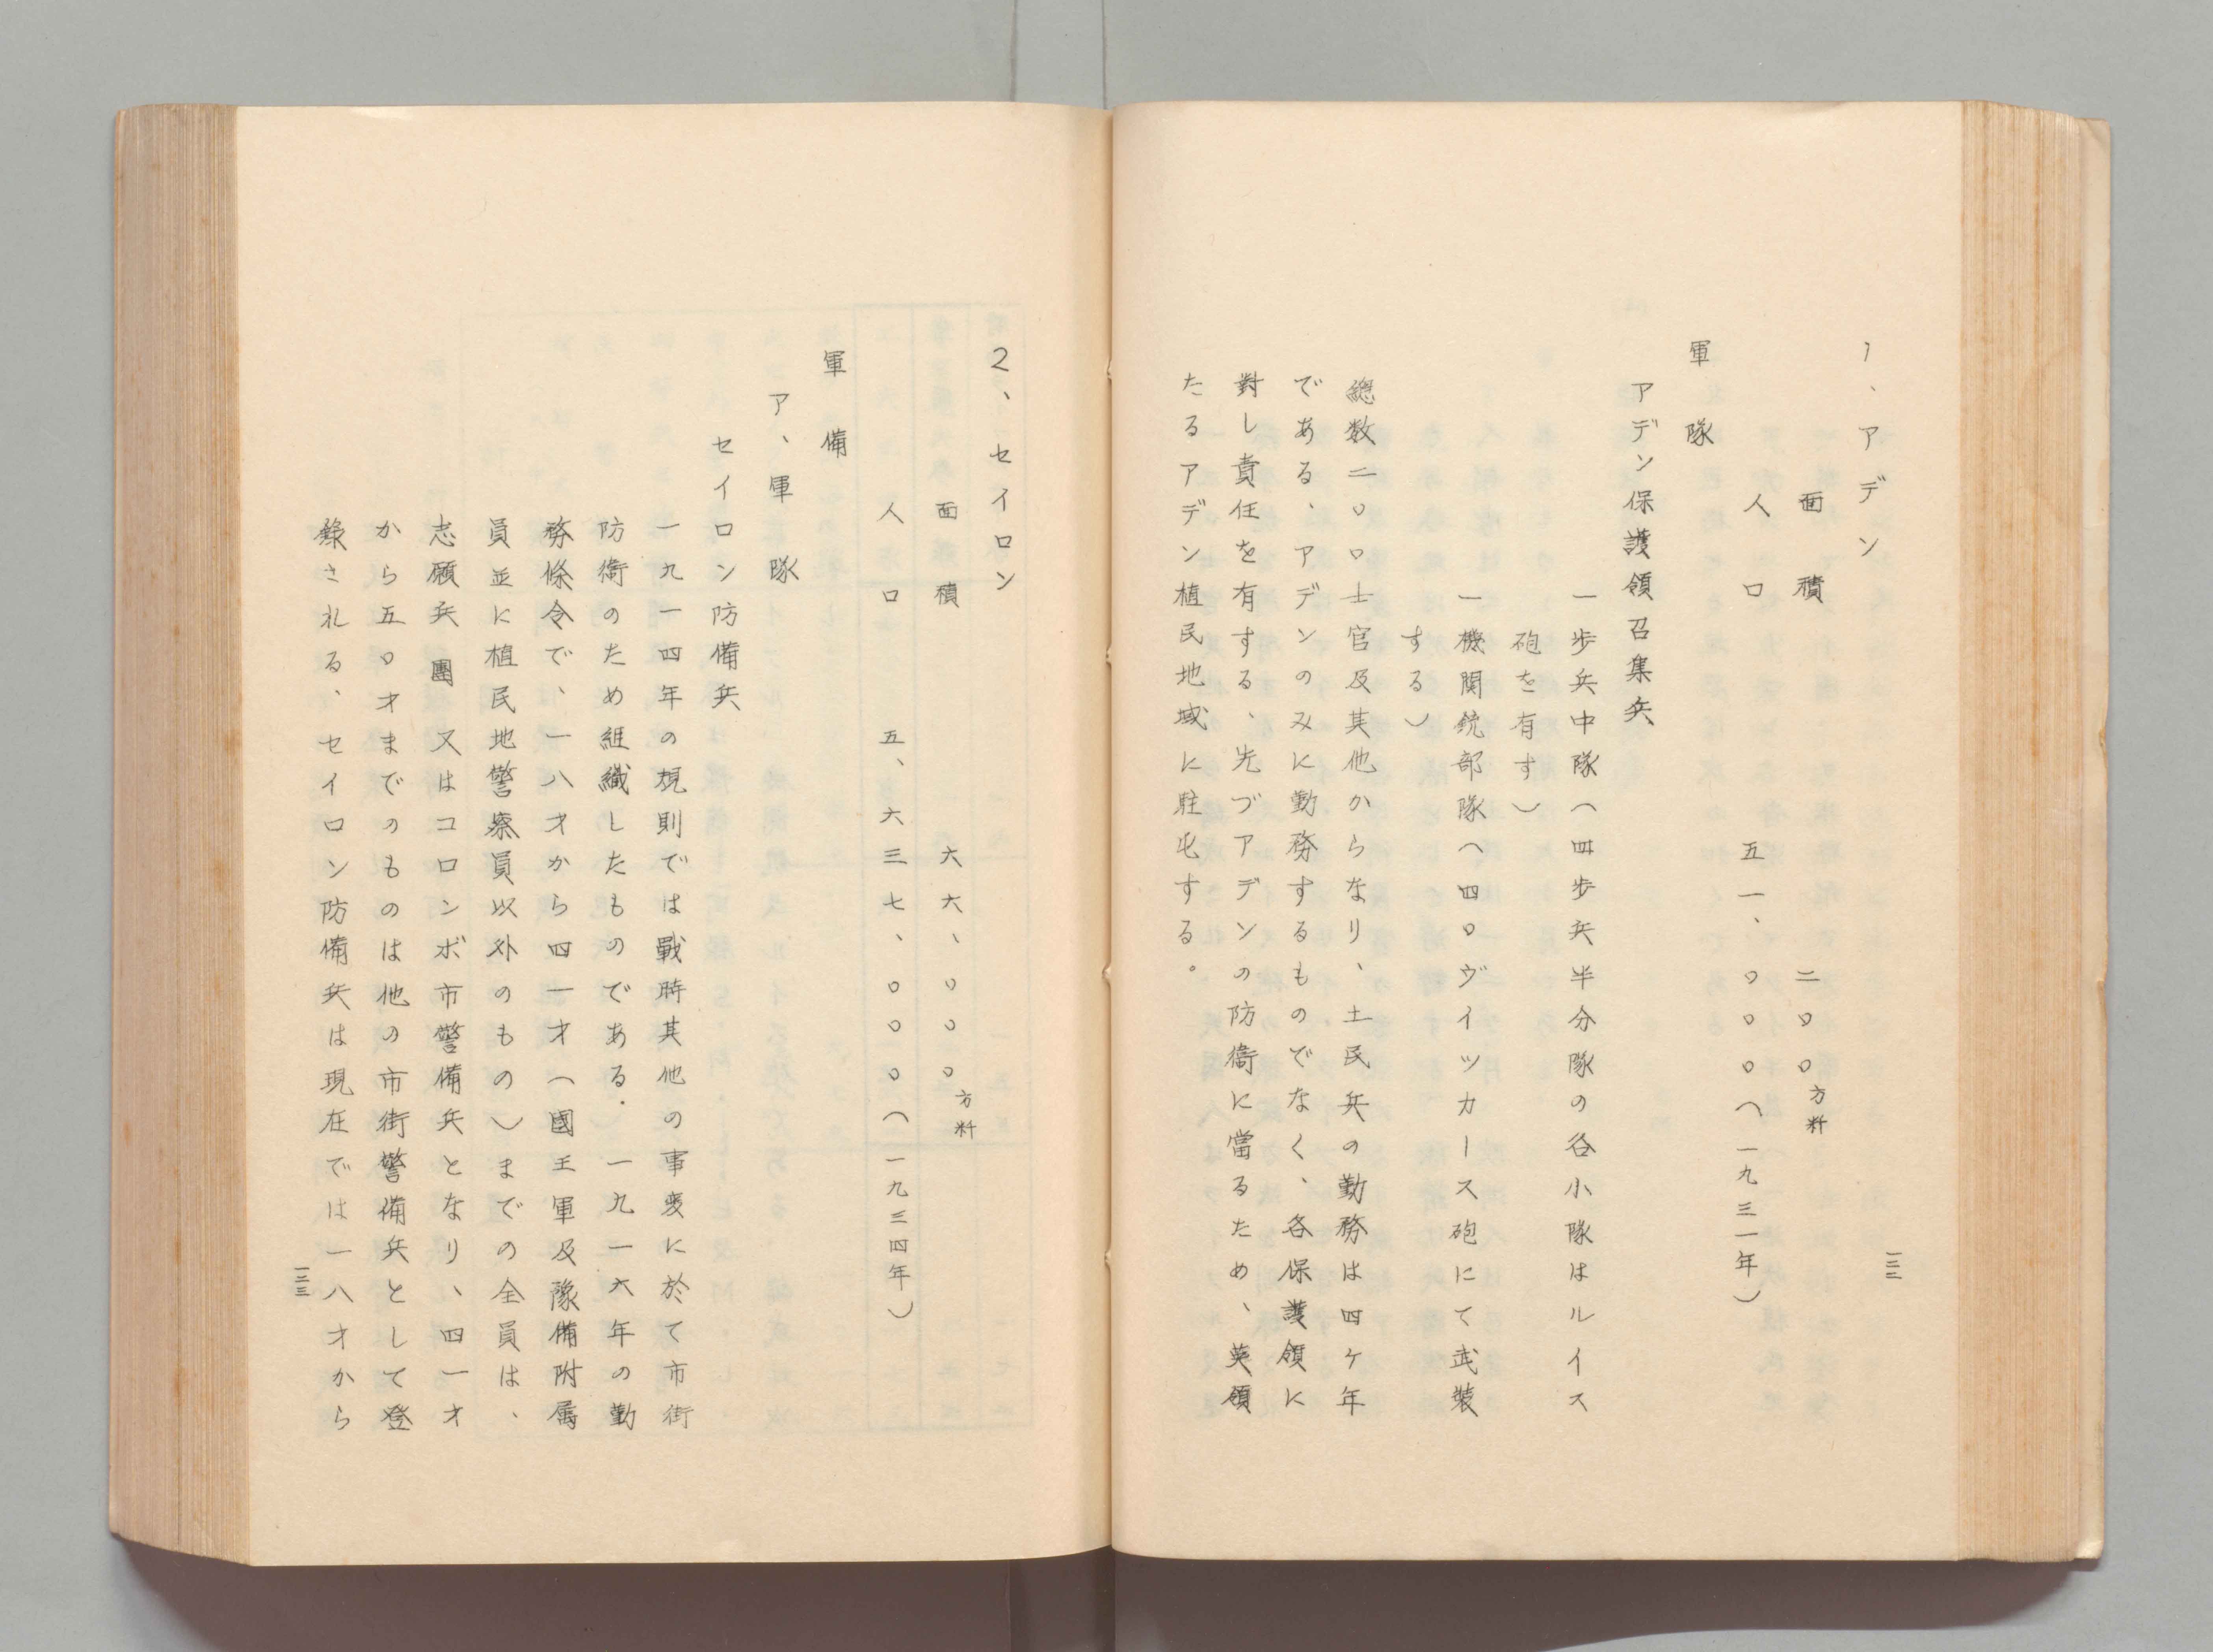 1、アデン
面積 二〇〇方粁
人口 五一、〇〇〇(一九三一年)
軍隊
アデン保護領召集兵
一歩兵中隊(四歩兵半分隊の各小隊はルイス
砲を有す)
一機関銃部隊(四〇ヴイツカース砲にて武装
する)
總数二〇〇士官及其他からなり、土民兵の勤務は四ケ年
である、アデンのみに勤務するものでなく、各保護領に
對し責任を有する、先づアデンの防衞に當るため、英領
たるアデン植民地域に駐屯する。
一三二
2、セイロン
面積 六六、〇〇〇方粁
人口 五、六三七、〇〇〇(一九三四年)
軍備
ア、軍隊
セイロン防備兵
一九一四年の規則では戰時其他の事変に於て市街
防衞のため組織したものである. 一九一六年の勤
務條令で、一八才から四一才(國王軍及豫備附属
員並に植民地警察員以外のもの)までの全員は、
志願兵團又はコロンボ市警備兵となり、四一才
から五〇才までのものは他の市街警備兵として登
錄される、セイロン防備兵は現在では一八才から
一三三